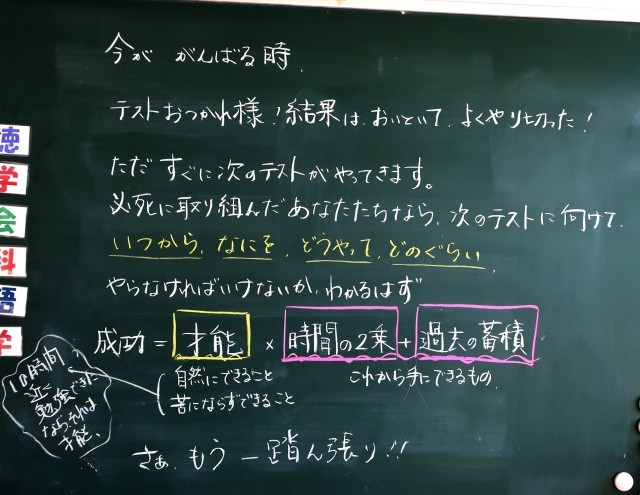 今が がんばる時.
テストおつかれ様!結果は、おいといて、よくやり切った!
ただ すぐに次のテストがやってきます。
必死に取り組んだあなたたちなら、次のテストに向けて、
いつから、なにを、どうやって、どのぐらい、
やらなければいけないか、わかるはず
成功 = 才能 × 時間の2乗 + 過去の蓄積
自然にできること
苦にならずできること
これから手にできるもの.
10時間
近く
勉強できた
ならそれは
才能、
さぁ、もう一踏ん張り!!
徳
学
会
科
語
学